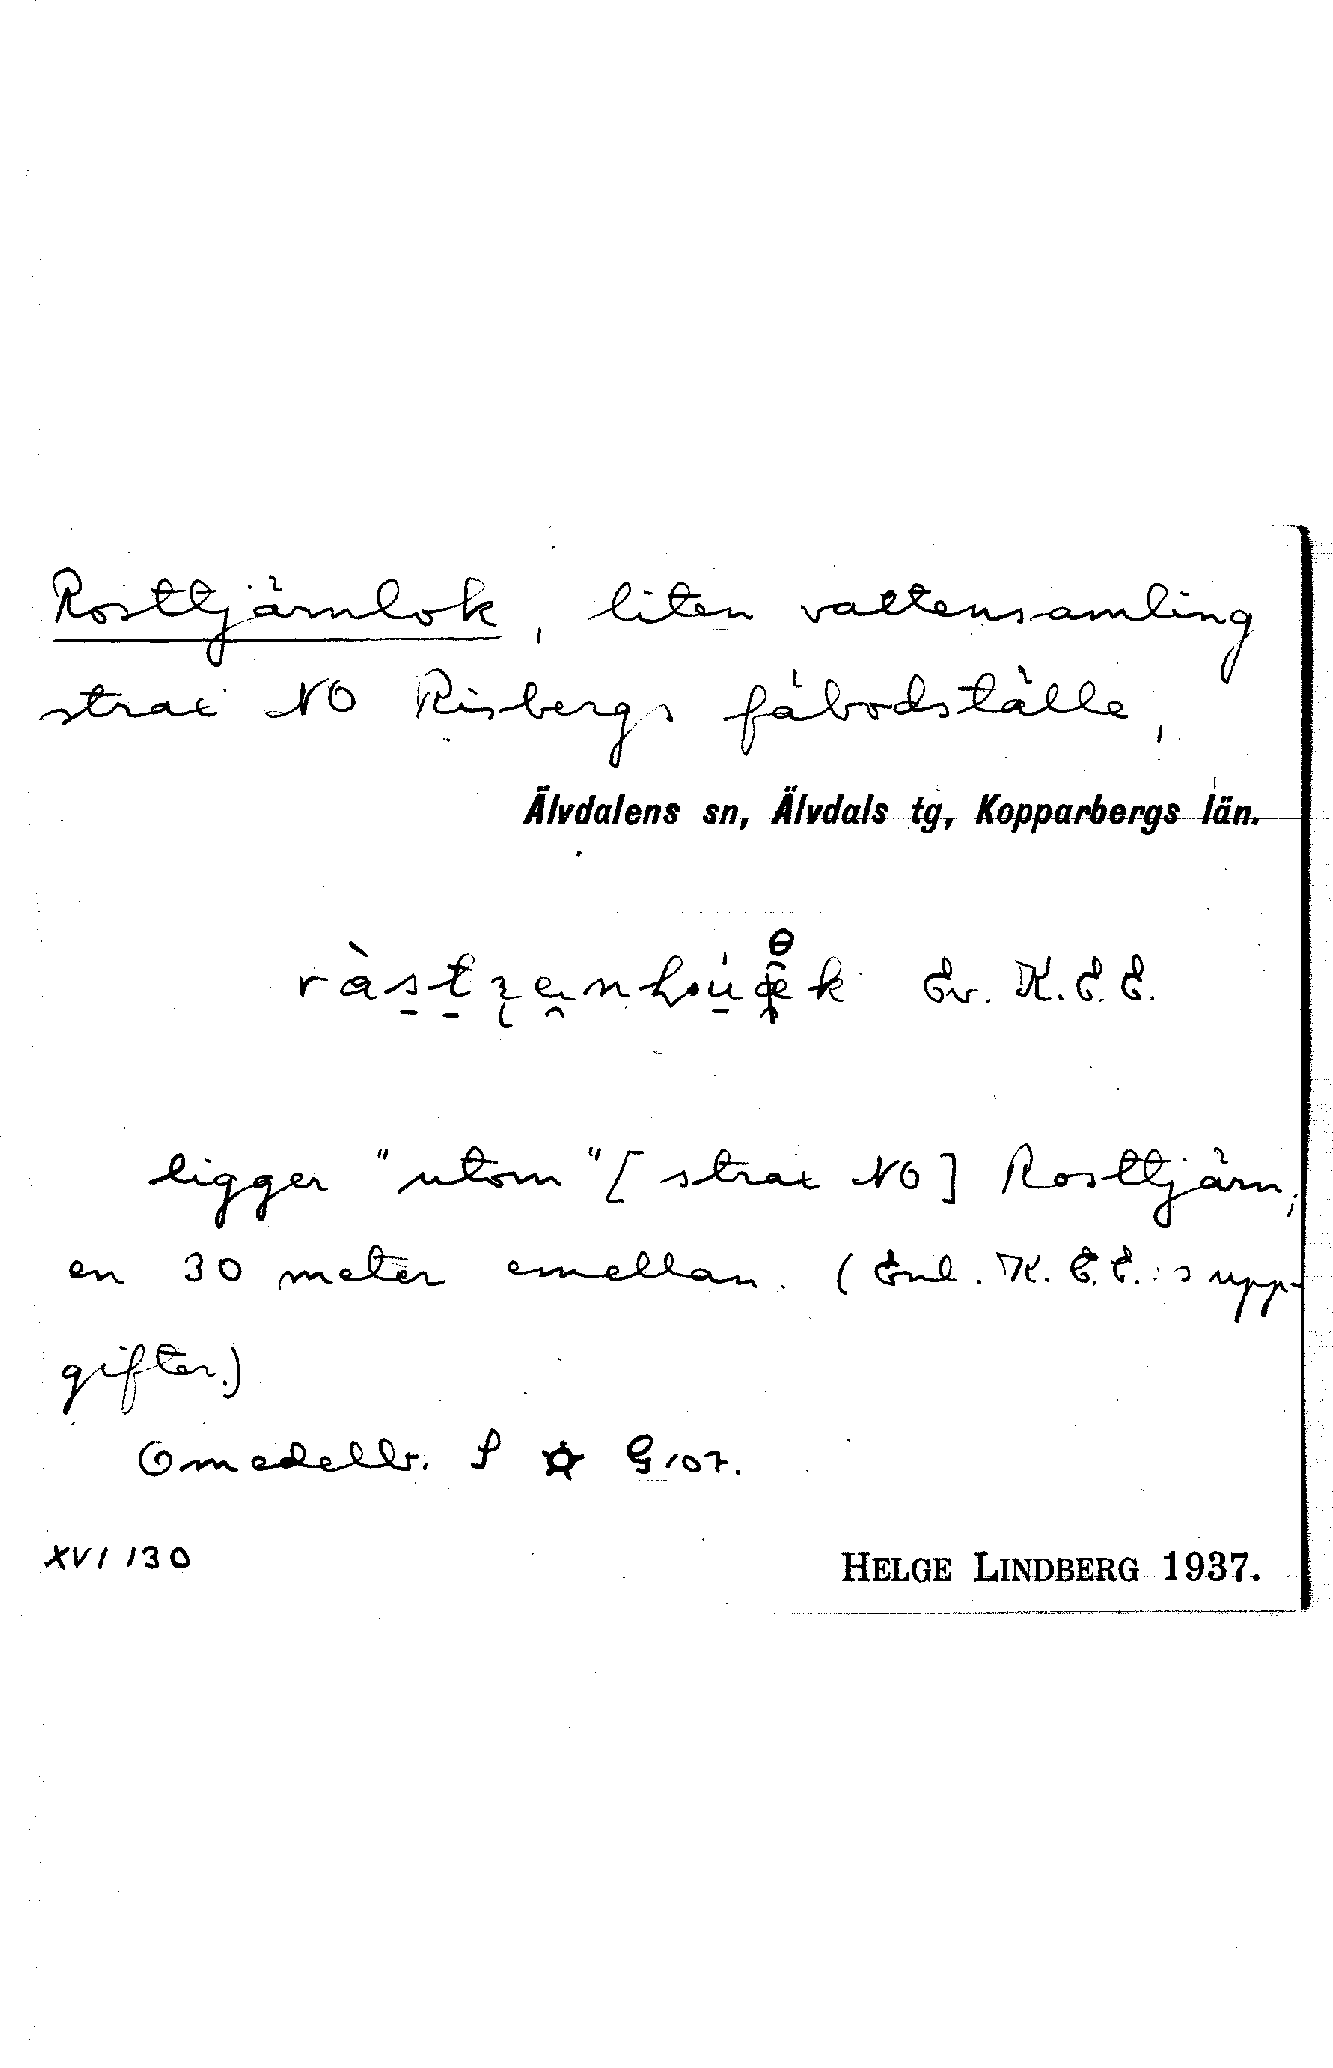 Rosttjärnlok, liten vattensamling
strax NO Risbergs fäbodställe,
Älvdalens sn, Älvdals tg, Kopparbergs län.
Ev. K. E. E.
ligger "utom" [strax NO] Rosttjärn,
en 30 meter emellan. (Enl. K. E. E.:s upp-
gifter.)
Omedelb. S ¤ G 107.
XVI 130
HELGE LINDBERG 1937.